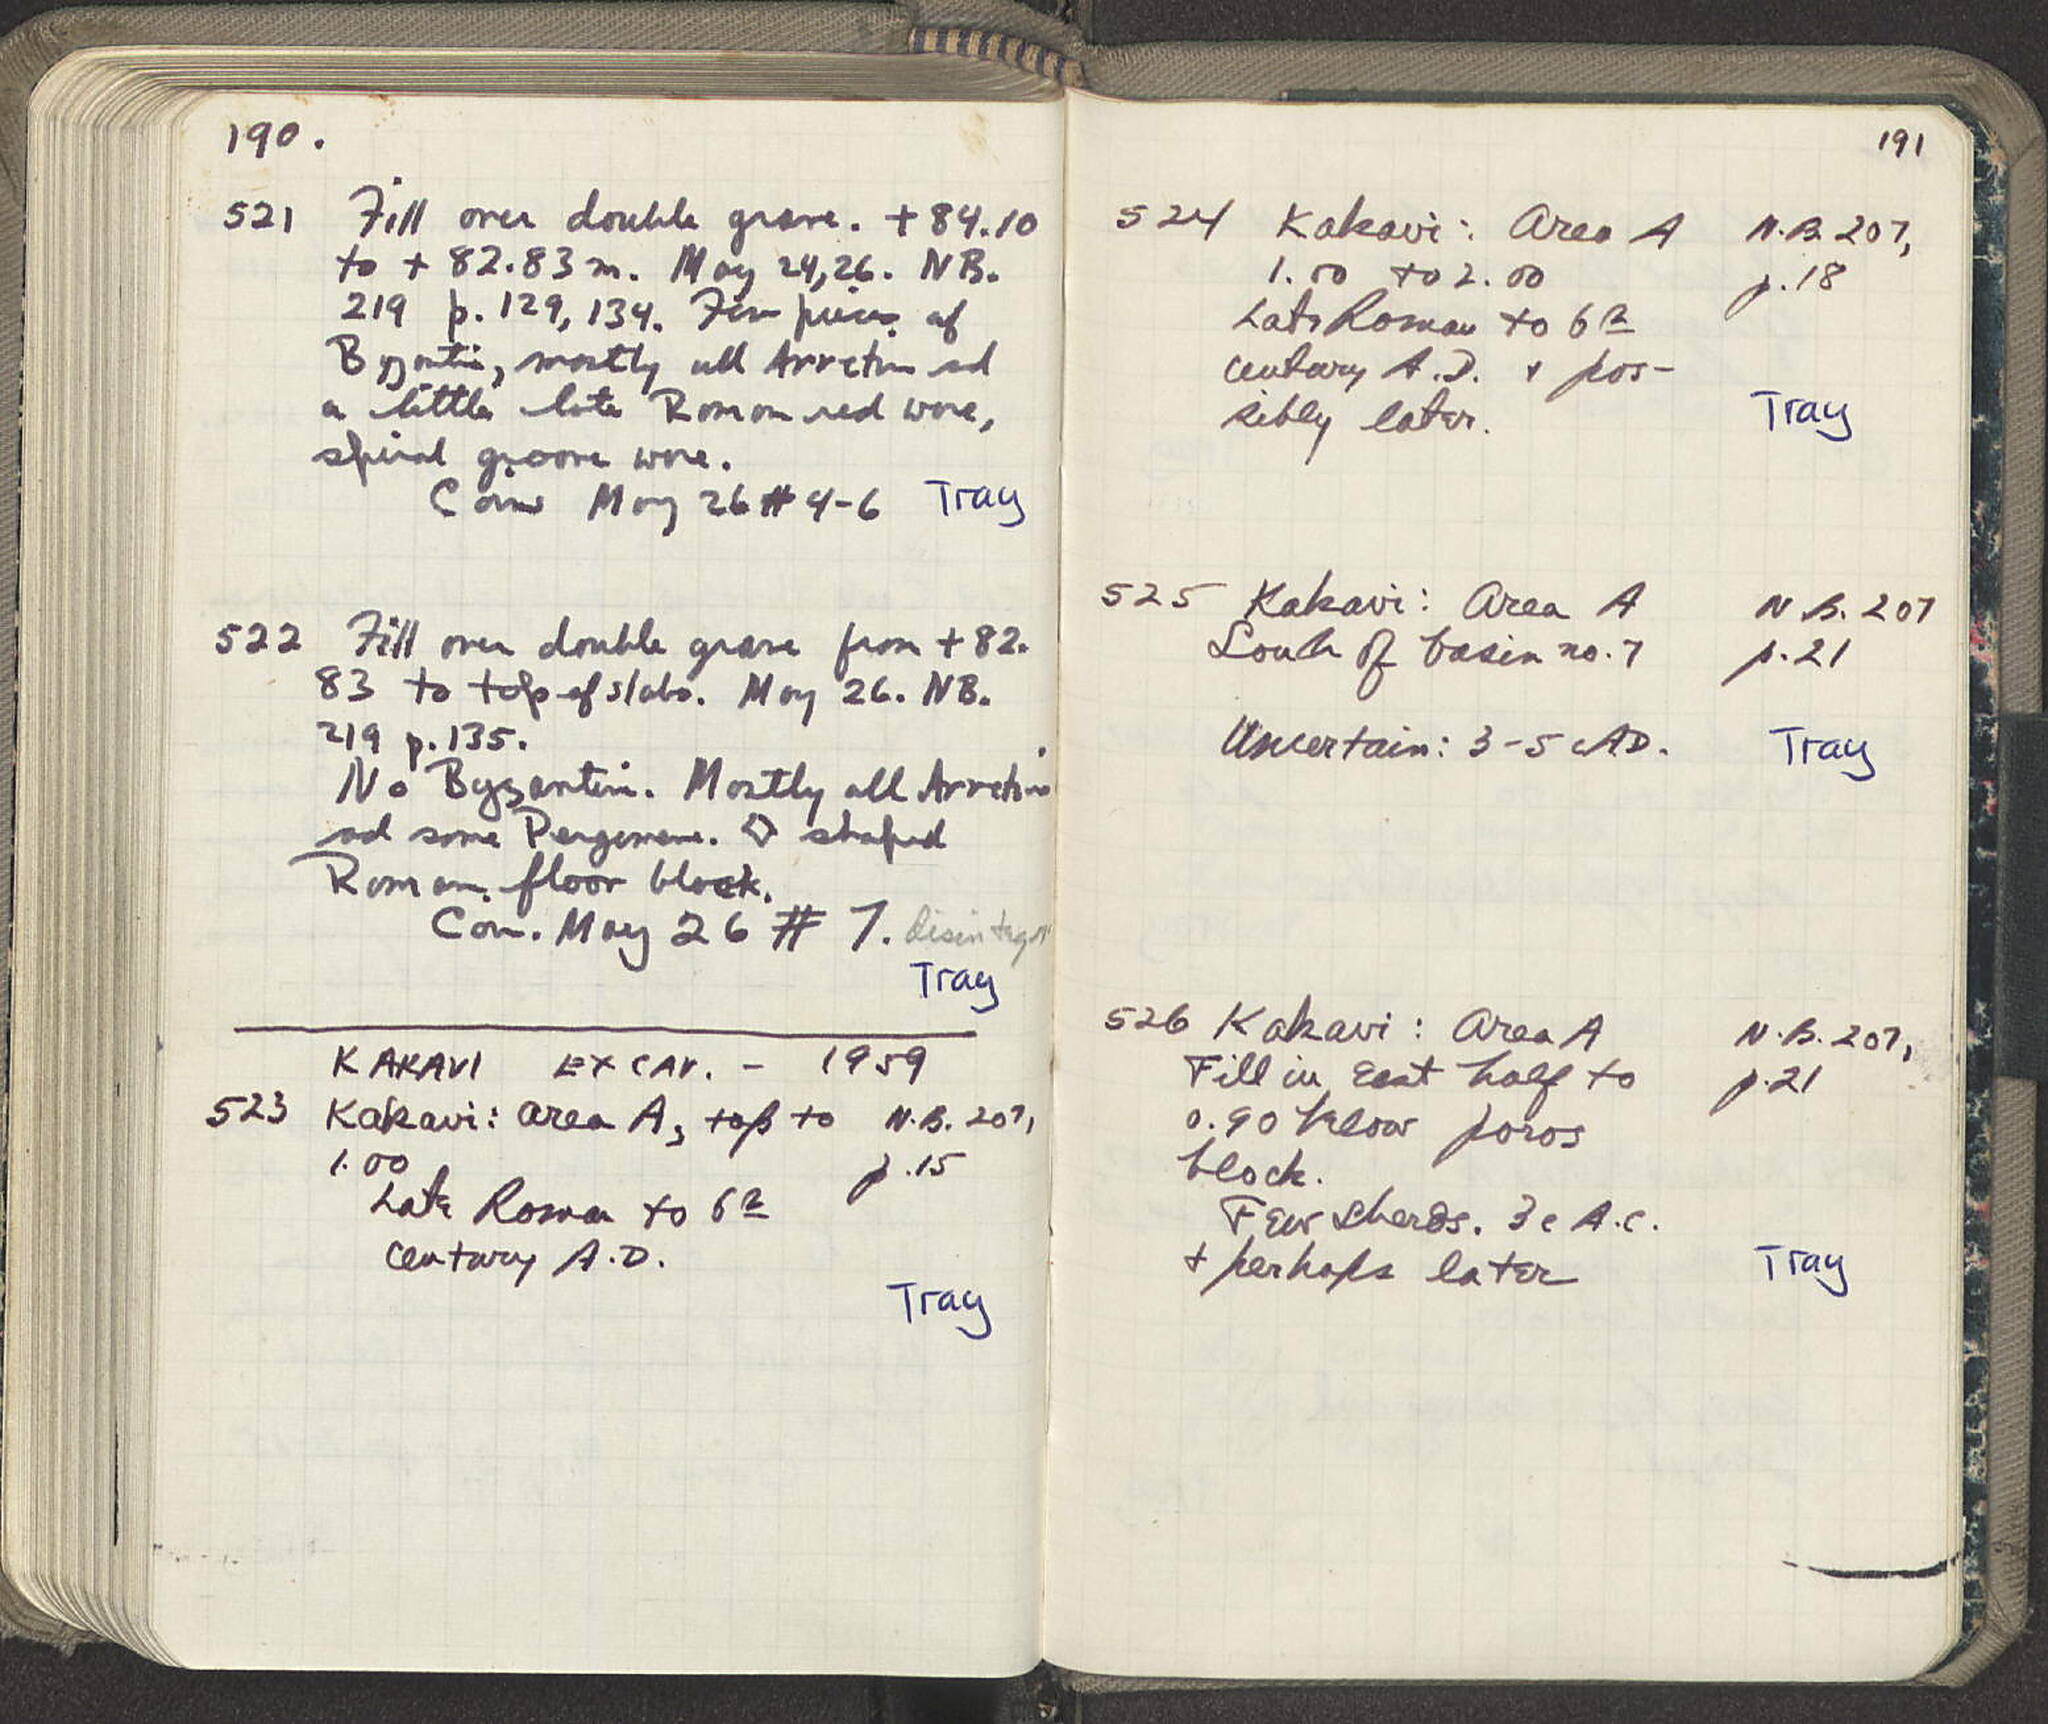 190.
521 Fill over double grave. +84.10
to + 82.83 m. May 24, 26. NB.
219 p. 129, 134. Few pieces of
Byzantin, mostly all Arretin and
a little late Roman red ware,
spiral groove ware.
Coins May 26 # 4-6 Tray
522 Fill over double grave from + 82.
83 to top of slabs. May 26. NB.
219 p. 135.
No Byzantin. Mostly all Arretin
and some Pergamene. ◇ shaped
Roman floor block.
Coin. May 26 # 7.
Tray
KAKAVI EXCAV. - 1959
523 Kakavi: Area A, top to N.B. 207,
1.00 p. 15
Late Roman to 6th
century A.D.
Tray
191
524 Kakavi: Area A N.B. 207,
1.00 to 2.00 p. 18
Late Roman to 6th
century A.D. + pos-
sibly later. Tray
525 Kakavi: Area A N.B. 207
South of basin no. 7 p. 21
Uncertain: 3-5 c AD. Tray
526 Kakavi: Area A N.B. 207,
Fill in East half to p. 21
0.90 below poros
block.
Few sherds. 3 c A.C.
+ perhaps later Tray